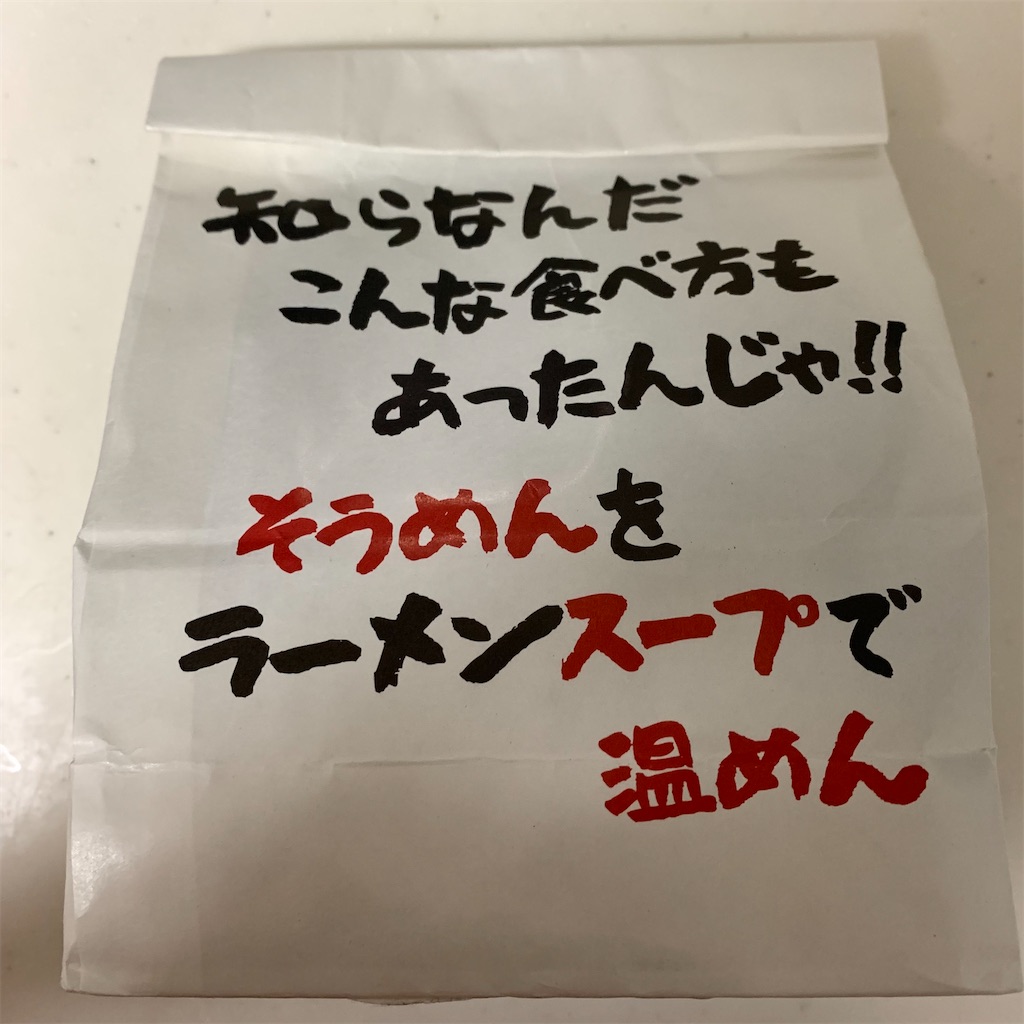 知らなんだ
こんな食べ方も
あったんじゃ!!
そうめんを
ラーメンスープで
温めん